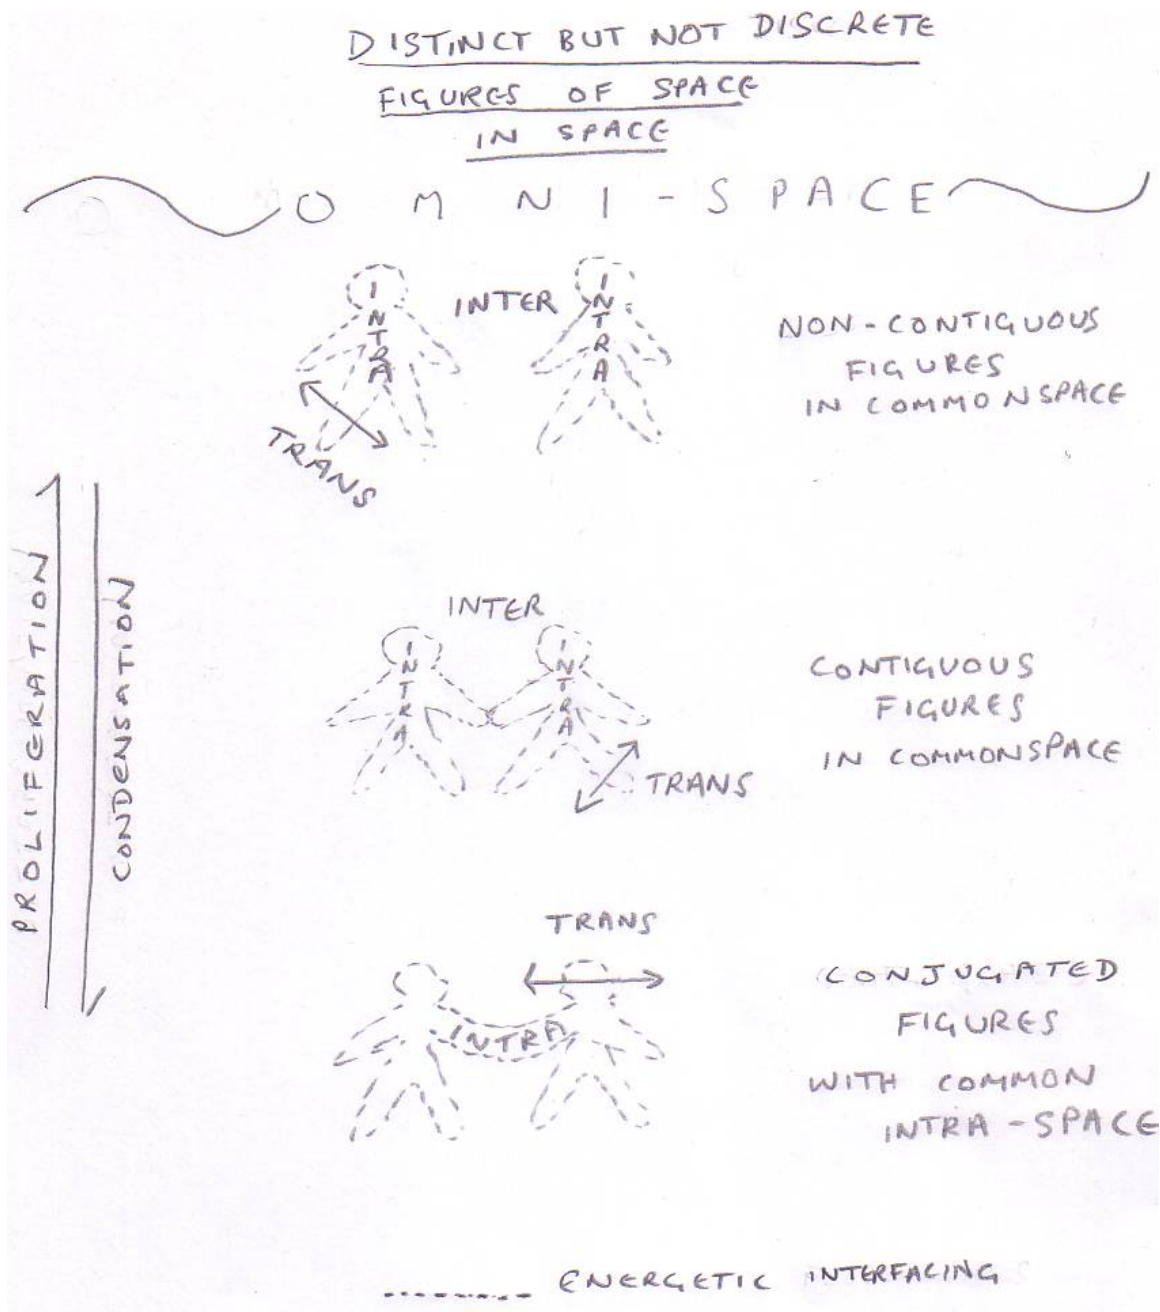 DISTINCT BUT NOT DISCRETE
FIGURES OF SPACE
IN SPACE
OMNI-SPACE
INTRA
INTER
INTRA
TRANS
NON-CONTIGUOUS
FIGURES
IN COMMONSPACE
PROLIFERATION
CONDENSATION
INTER
INTRA
INTRA
TRANS
CONTIGUOUS
FIGURES
IN COMMONSPACE
TRANS
INTRA
CONJUGATED
FIGURES
WITH COMMON
INTRA-SPACE
ENERGETIC INTERFACING